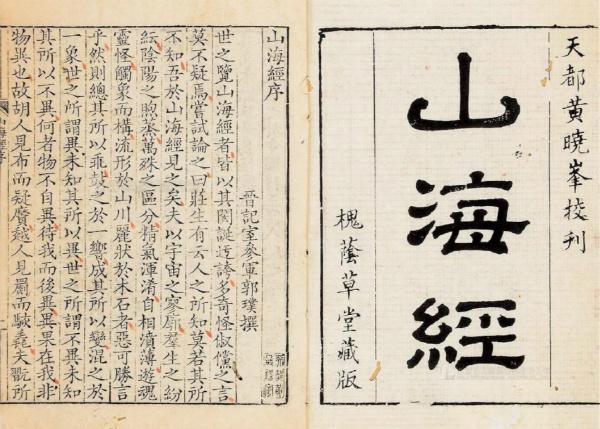 天都黃曉峯挍刊
山海經
槐蔭草堂藏版
山海經序
晉記室參軍郭璞撰
世之覽山海經者皆以其閎誕迃誇多奇怪俶儻之言
莫不疑焉嘗試論之曰莊生有云人之所知莫若其所
不知吾於山海經見之矣夫以宇宙之寥廓羣生之紛
紜陰陽之煦蒸萬殊之區分精氣渾淆自相濆薄遊魂
靈怪觸象而構流形於山川麗狀於木石者惡可勝言
乎然則總其所以乖鼓之於一響成其所以變混之於
一象世之所謂異未知其所以異世之所謂不異未知
其所以不異何者物不自異待我而後異異果在我非
物異也故胡人見布而疑黂越人見罽而駭毳夫翫所